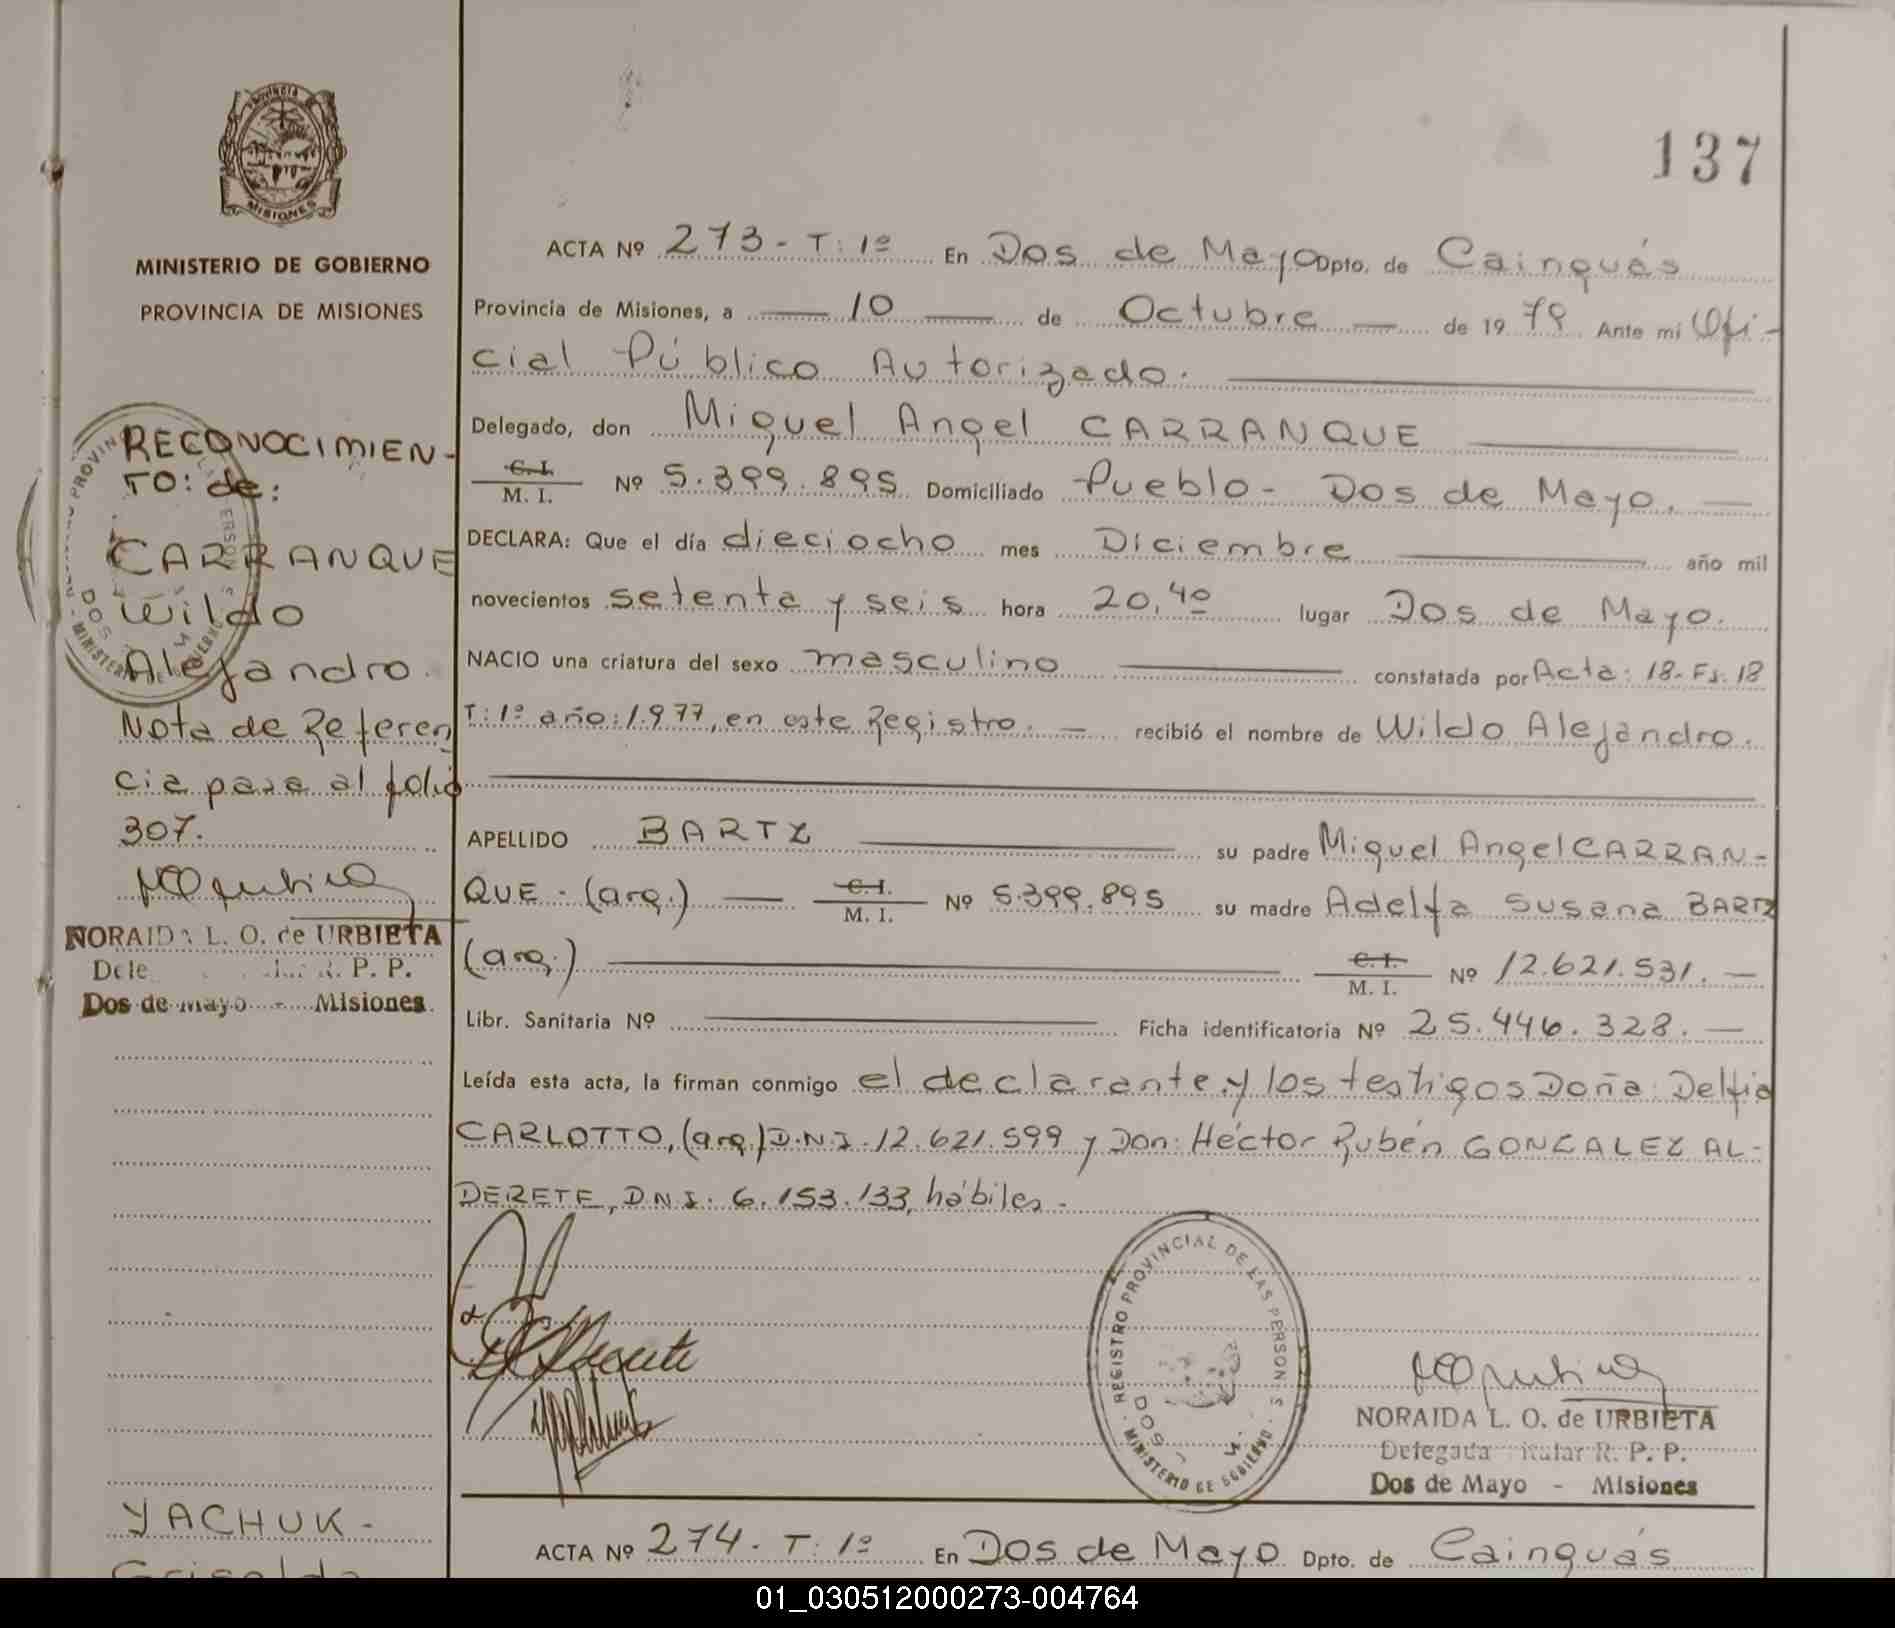 137
MINISTERIO DE GOBIERNO
PROVINCIA DE MISIONES
ACTA Nº 273 - T: 1º En Dos de Mayo Dpto. de Cainguás
Provincia de Misiones, a 10 de Octubre de 1979 Ante mi Ofi-
cial Público Autorizado.
Delegado, don Miguel Angel CARRANQUE
C. I. M. I. Nº 5.399.895 Domiciliado Pueblo - Dos de Mayo.
DECLARA: Que el día dieciocho mes Diciembre año mil
novecientos setenta y seis hora 20,40 lugar Dos de Mayo.
NACIO una criatura del sexo masculino constatada por Acta: 18- Fs. 18
T: 1º año: 1.977, en este Registro. recibió el nombre de Wildo Alejandro.
APELLIDO BARTZ su padre Miguel Angel CARRAN-
QUE - (arg.) C. I. M. I. Nº 5.399.895 su madre Adelfa Susana BARTZ
(arg.) C. I. M. I. Nº 12.621.531.
Libr. Sanitaria Nº Ficha identificatoria Nº 25.446.328.
Leída esta acta, la firman conmigo el declarante y los testigos Doña: Delfia
CARLOTTO, (arg.) D.N.I. 12.621.599 y Don: Héctor Rubén GONZALEZ AL-
DERETE, D.N.I. 6.153.133, hábiles.
RECONOCIMIEN-
TO: de:
CARRANQUE
Wildo
Alejandro.
Nota de Referen
cia pasa al folio
307.
NORAIDA L. O. de URBIETA
R. P. P.
Dos de mayo - Misiones.
REGISTRO PROVINCIAL DE LAS PERSON S
MINISTERIO DE GOBIERNO
DOS
NORAIDA L. O. de URBIETA
Delegada R. P. P.
Dos de Mayo - Misiones
YACHUK -
Griselda
ACTA Nº 274 - T: 1º En Dos de Mayo Dpto. de Cainguás
01_030512000273-004764